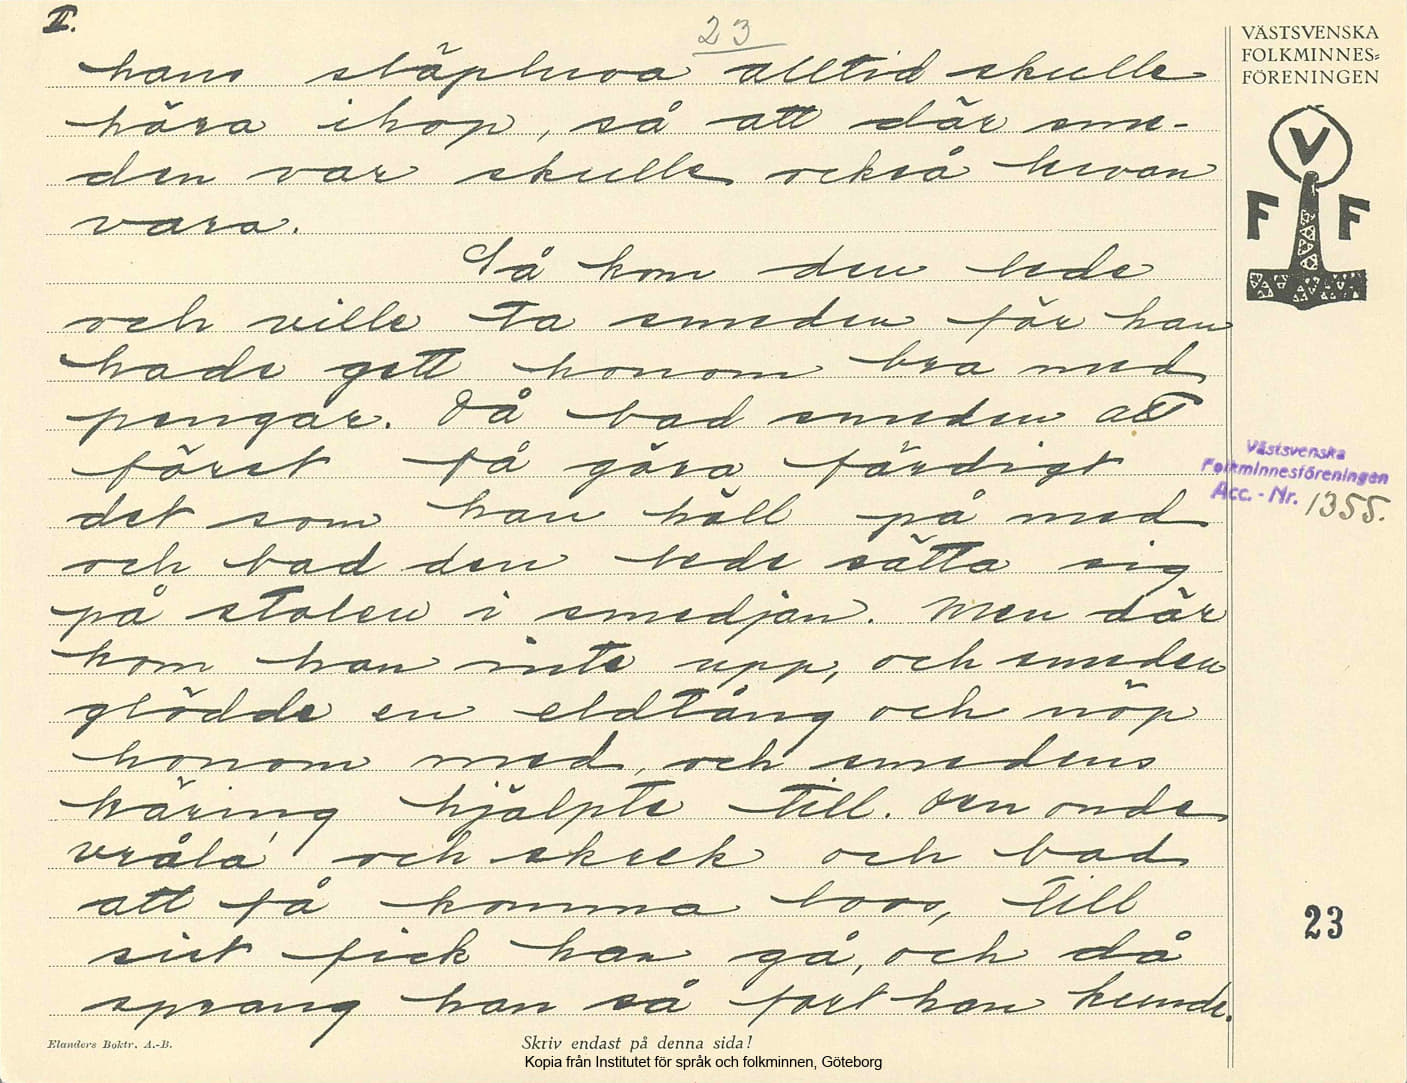 II.
23
hans släpluva alltid skulle
höra ihop, så att där sme-
den var skulle också luvan
vara.
Så kom den lede
och ville ta smeden för han
hade gett honom bra med
pengar. Då bad smeden att
först få göra färdigt
det som han höll på med
och bad den lede sätta sig
på stolen i smedjan. Men där
kom han inte upp, och smeden
glödde en eldtång och nöp
honom med, och smedens
käring hjälpte till. Den onde
vråla' och skrek och bad
att få komma loss, till
sist fick han gå, och då
sprang han så fort han kunde.
VÄSTSVENSKA
FOLKMINNES=
FÖRENINGEN
V
F F
Västsvenska
Folkminnesföreningen
Acc. - Nr. 1355.
23
Elanders Boktr. A.-B.
Skriv endast på denna sida!
Kopia från Institutet för språk och folkminnen, Göteborg